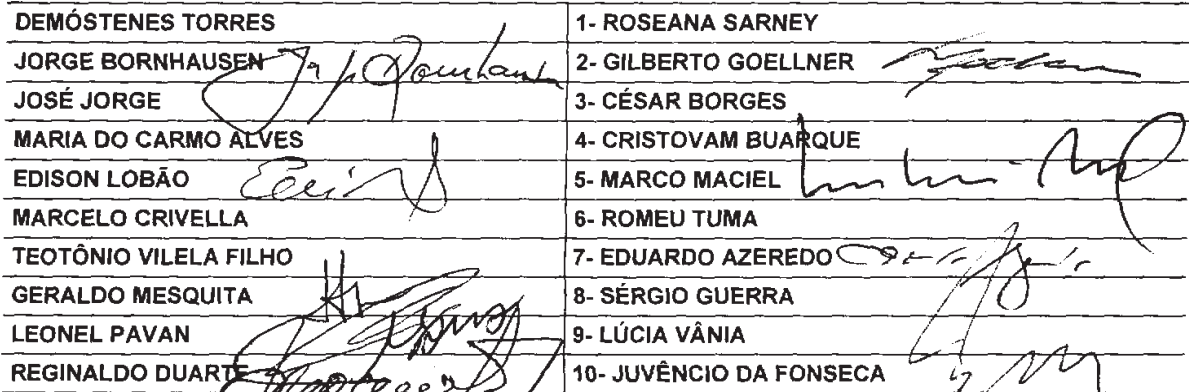 DEMÓSTENES TORRES 1- ROSEANA SARNEY
JORGE BORNHAUSEN 2- GILBERTO GOELLNER
JOSÉ JORGE 3- CÉSAR BORGES
MARIA DO CARMO ALVES 4- CRISTOVAM BUARQUE
EDISON LOBÃO 5- MARCO MACIEL
MARCELO CRIVELLA 6- ROMEU TUMA
TEOTÔNIO VILELA FILHO 7- EDUARDO AZEREDO
GERALDO MESQUITA 8- SÉRGIO GUERRA
LEONEL PAVAN 9- LÚCIA VÂNIA
REGINALDO DUARTE 10- JUVÊNCIO DA FONSECA